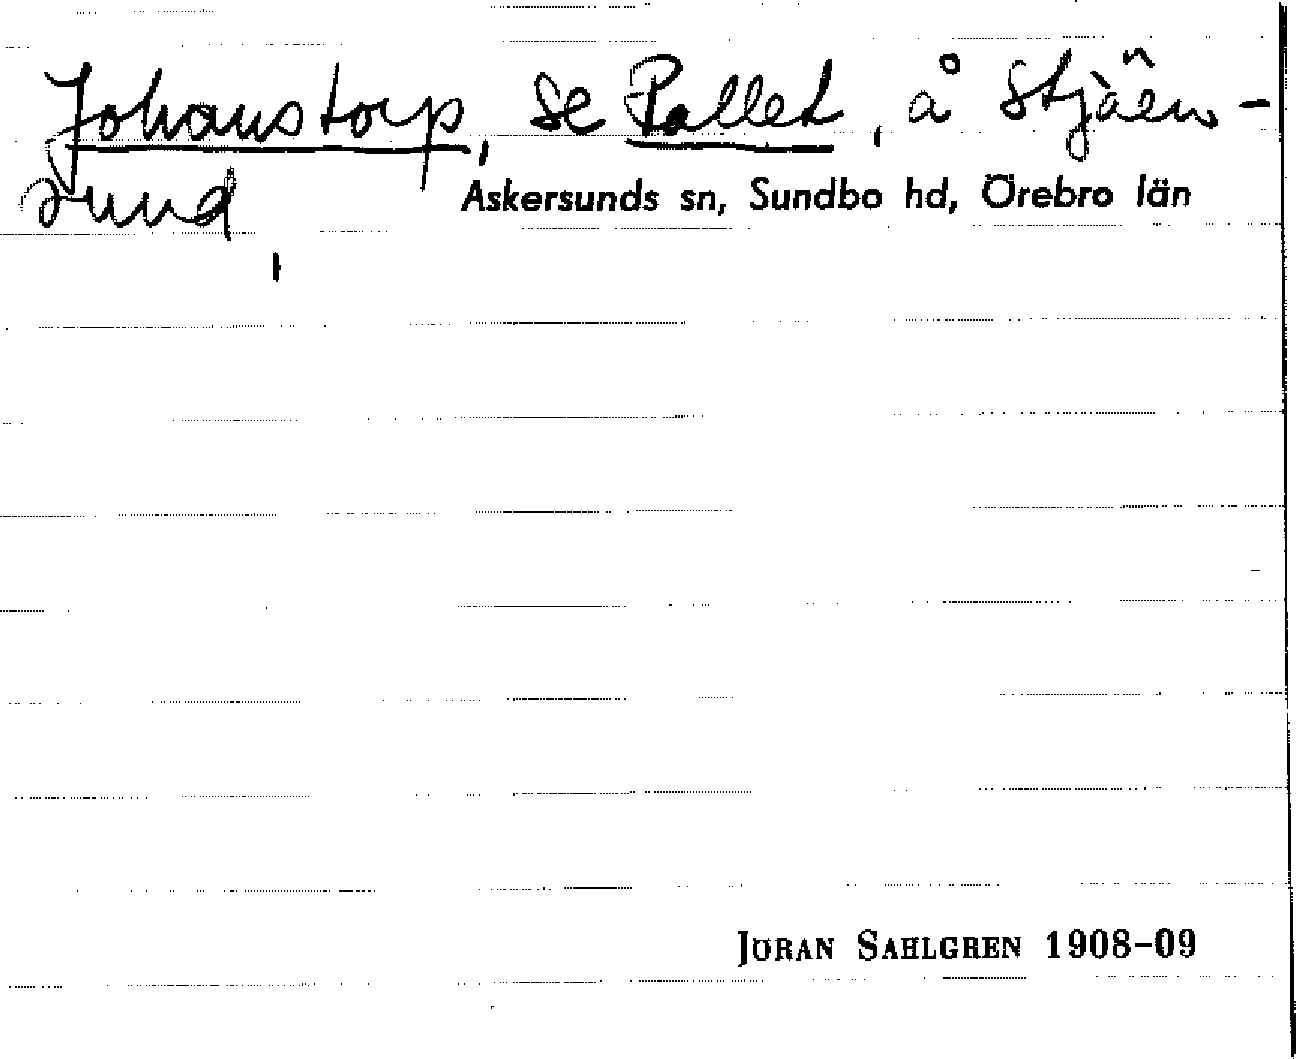 Johanstorp, se Pallet, å Stjärn-
sund,
Askersunds sn, Sundbo hd, Örebro län
JÖRAN SAHLGREN 1908-09